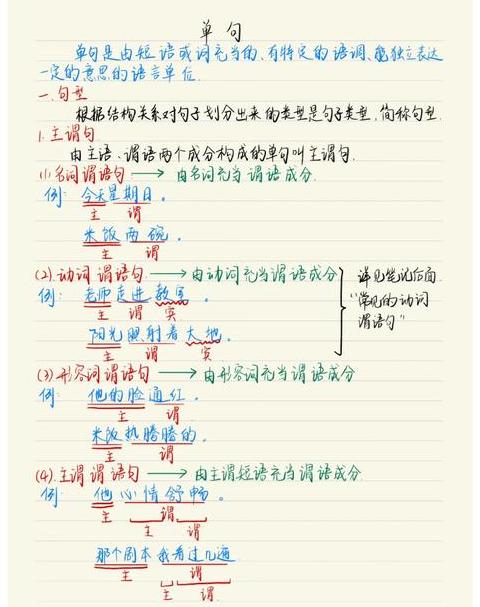 单句
单句是由短语或词充当的、有特定的语调、能独立表达
一定的意思的语言单位.
一.句型
根据结构关系对句子划分出来的类型是句子类型,简称句型.
1.主谓句
由主语、谓语两个成分构成的单句叫主谓句.
(1)名词谓语句 → 由名词充当谓语成分.
例: 今天星期日。
主 谓
米饭两碗。
主 谓
(2).动词谓语句 → 由动词充当谓语成分
详见笔记后面
例: 老师走进教室。
"常见的动词
主 谓 宾
谓语句"
阳光照射着大地。
主 谓 宾
(3)形容词谓语句 → 由形容词充当谓语成分
例: 他的脸通红。
主 谓
米饭热腾腾的。
主 谓
(4).主谓谓语句 → 由主谓短语充当谓语成分
例: 他心情舒畅。
主 谓
主 谓
那个剧本我看过几遍
主 谓
主 谓